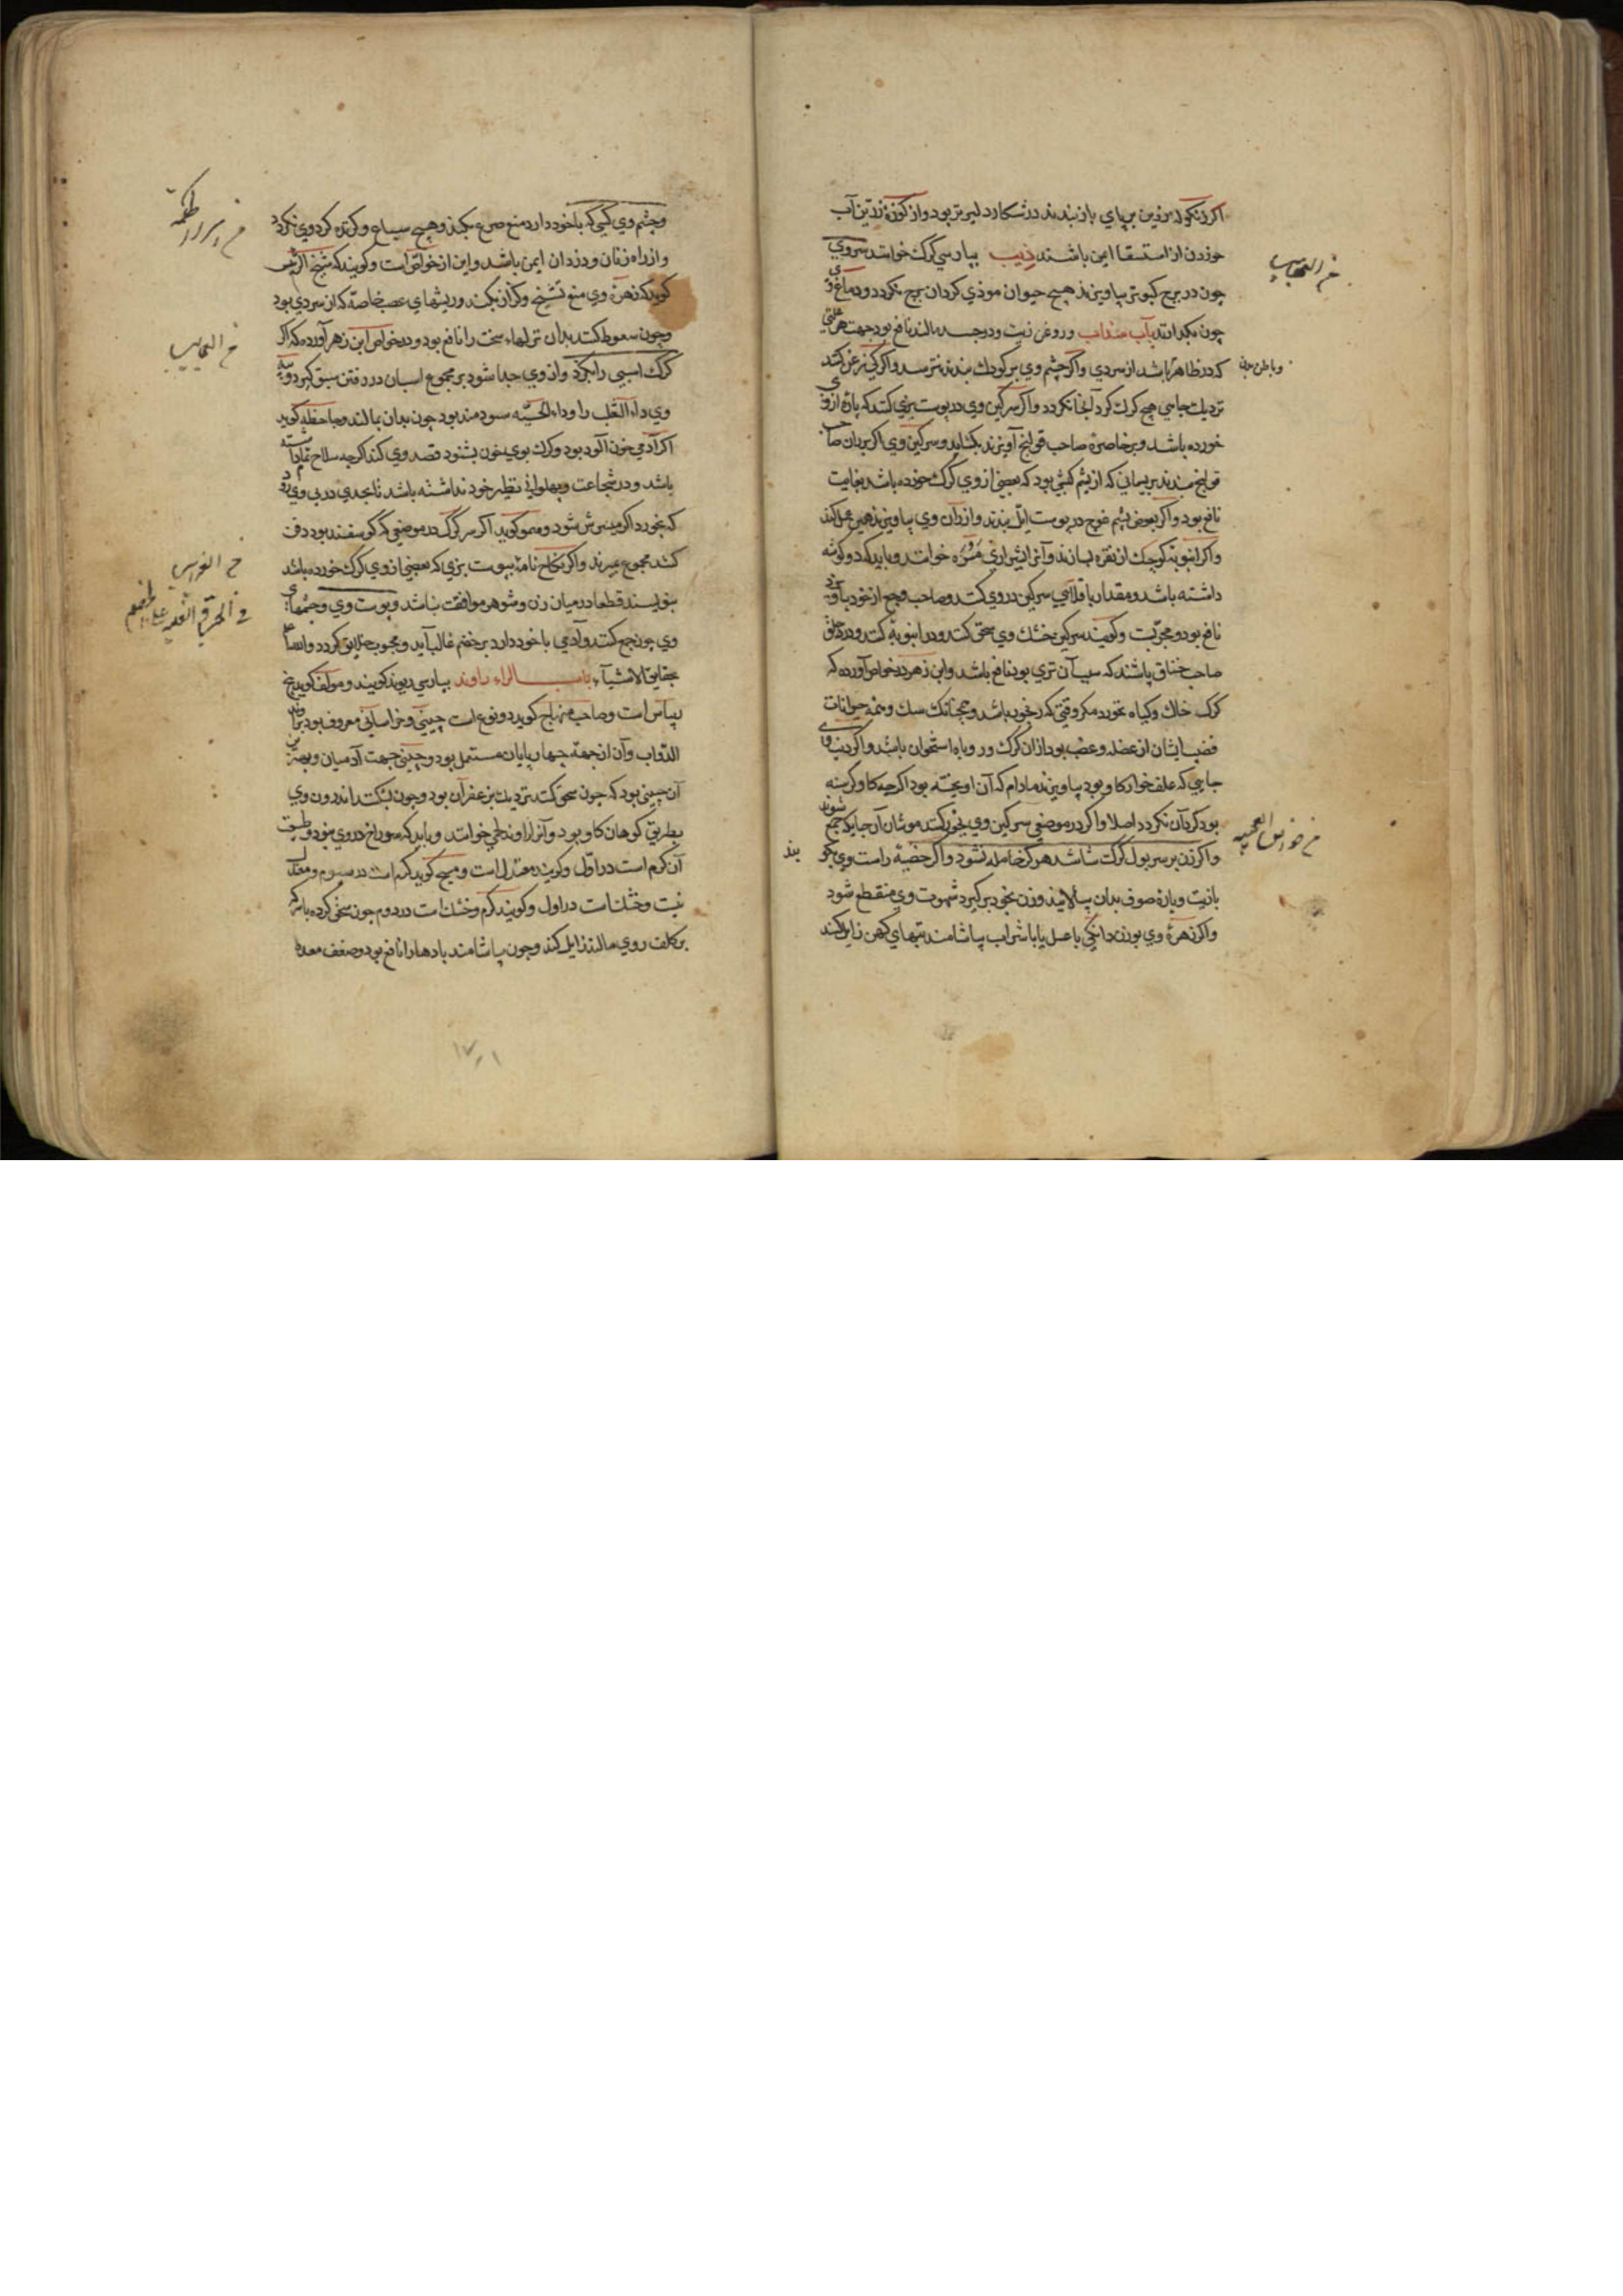 اکر زنکوله زرین بر پای باز بندند در شکار دلیرتر بود و از کوزهٔ زرین آب
خوردن از استسقا ایمن باشند ذیب بپارسی کرک خوانند سر وی
چون در برج کبوتر بیاویزند هیچ حیوان موذی کردان برج نکردد و دماغ وی
چون بکدازند بآب سداب و روغن زیت و در جسد مالند نافع بود جهت هر علتی
که در ظاهر باشد از سردی و اکر چشم وی بر کودک بندند نترسد و اکر کی
نزدیک جایی هیچ کرک کرد آنجا نکردد و اکر سرکین وی در پوست بزی کنند که پارهٔ از وی
خورده باشد و بر خاصرهٔ صاحب قولنج آویزند بکشاید و سرکین وی اکر بران صاحب
قولنج بندند بریسمانی که از پشم کبشی بود که بعضی از وی کرک خورده باشد بغایت
نافع بود و اکر بعوض پشم قوچ در پوست ایل بندند و از ران وی بیاویزند همین عمل کند
و اکر انبوبهٔ کوچک از نقره بسازند و آنرا شیرازی خوانند و باید که دو کوشه
داشته باشد و مقدار باقلایی سرکین در وی کنند و صاحب وجع از خود بیاویزد
نافع بود و مجربست و کویند سرکین خشک وی سحق کنند و در انبوبهٔ کنند و در حلق
صاحب خناق پاشند که سبب آن تری بود نافع باشد و ابن زهر در خواص آورده که
کرک خاک و کیاه نخورد مکر وقتی که رنجور باشد و همچنانک سک و همه حیوانات
قضیب ایشان از عضله و عصب بود ازان کرک و روباه استخوان باشد و اکر دنب وی
جایی که علف خوار کاو بود بیاویزند مادام که آن اویخته بود اکر چه کاو کرسنه
بود کرد آن نکردد اصلا و اکر در موضعی سرکین وی بخور کنند موشان آن جایکه جمع شوند
و اکر زن بر سر بول کرک شاشد هرکز حامله نشود و اکر خصیهٔ راست وی
بازیت و پارهٔ صوف بدان بیالایند و زن بخود برکیرد شهوت وی منقطع شود
و اکر زهرهٔ وی بوزن دانکی با عسل یا با شراب بیاشامند تبهای کهن زایل کند
خ العجایب
و باطن بدن
خ خواص العجیبه
و چشم وی کسی که با خود دارد منع صرع بکند و هیچ سباع و کزنده کرد وی نکردد
و از راه زنان و دزدان ایمن باشد و این از خواص است و کویند که شیخ الرئیس
کوید که زهرهٔ وی منع تشنج و کزاز بکند و ریشهای عصب خاصه که از سردی بود
و چون سعوط کنند بدان نزلهاء سخت را نافع بود و در خواص ابن زهر آورده که اکر
کرک اسبی را بکزد و از وی جدا شود بر مجموع اسبان در رفتن سبق کیرد و پیه
وی داء الثعلب را و داء الحیه سودمند بود چون بدان بمالند و جاحظ کوید
اکر آدمی خون آلود بود و کرک بوی خون بشنود قصد وی کند اکر چه سلاح تمام داشته
باشد و در شجاعت و پهلوانی نظیر خود نداشته باشد تا بجدی در پی وی رود
که بخورد اکر میسرش شود و همو کوید اکر سر کرک در موضعی که کوسفند بود دفن
کنند مجموع بمیرند و اکر نکاح نامهٔ بپوست بزی که بعضی از وی کرک خورده باشد
بنویسند قطعا در میان زن و شوهر موافقت نباشد و پوست وی و چشمهای
وی چون جمع کنند و آدمی با خود دارد بر خصم غالب آید و محبوب خلایق کردد و الله اعلم
بحقایق الاشیآء باب الراء راوند بپارسی ریوند کویند و مولف کوید بیخ
ریباس است و صاحب منهاج کوید دو نوع است چینی و خراسانی معروف بود براوند
الدواب و آن از جهة چهارپایان مستعمل بود و چینی جهت آدمیان و بهترین
آن چینی بود که چون سحق کنند نزدیک بزعفران بود و چون بشکنند اندرون وی
بطریق کوهان کاو بود و آنرا راوند لحمی خوانند و باید که سوراخ در وی نبود و طبیعت
آن کرم است در اول و کویند معتدل است و مسیح کوید کرم است در سیوم و معتدل
نیست و خشک است در اول و کویند کرم و خشک است در دوم چون سحق کرده با سرکه
بر کلف روی مالند زایل کند و چون بیاشامند بادها را نافع بود و ضعف معده
خ العجایب
خ الخواص